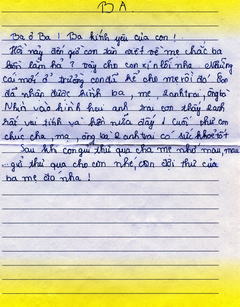 BA
Ba ở Ba! Ba kính yêu của con!
Hổi này đến giờ con toàn viết về mẹ chắc ba
buồn lắm hả? Vậy cho con xin lỗi nha. Những
cái mới ở trường con đã kể cho mẹ rồi đó. Con
đã nhận được hình ba mẹ, 2 anh trai, ông bà
Nhìn vào hình hai anh trai con thấy 2 anh
rất vui tính và hiền nữa đấy! Cuối thư con
chúc cha, mẹ, ông bà 2 anh trai có sức khoẻ tốt
Sau khi con gửi thư qua cha mẹ nhớ mau, mau
gửi thư qua cho con nhé, con đợi thư của
ba mẹ đó nha!